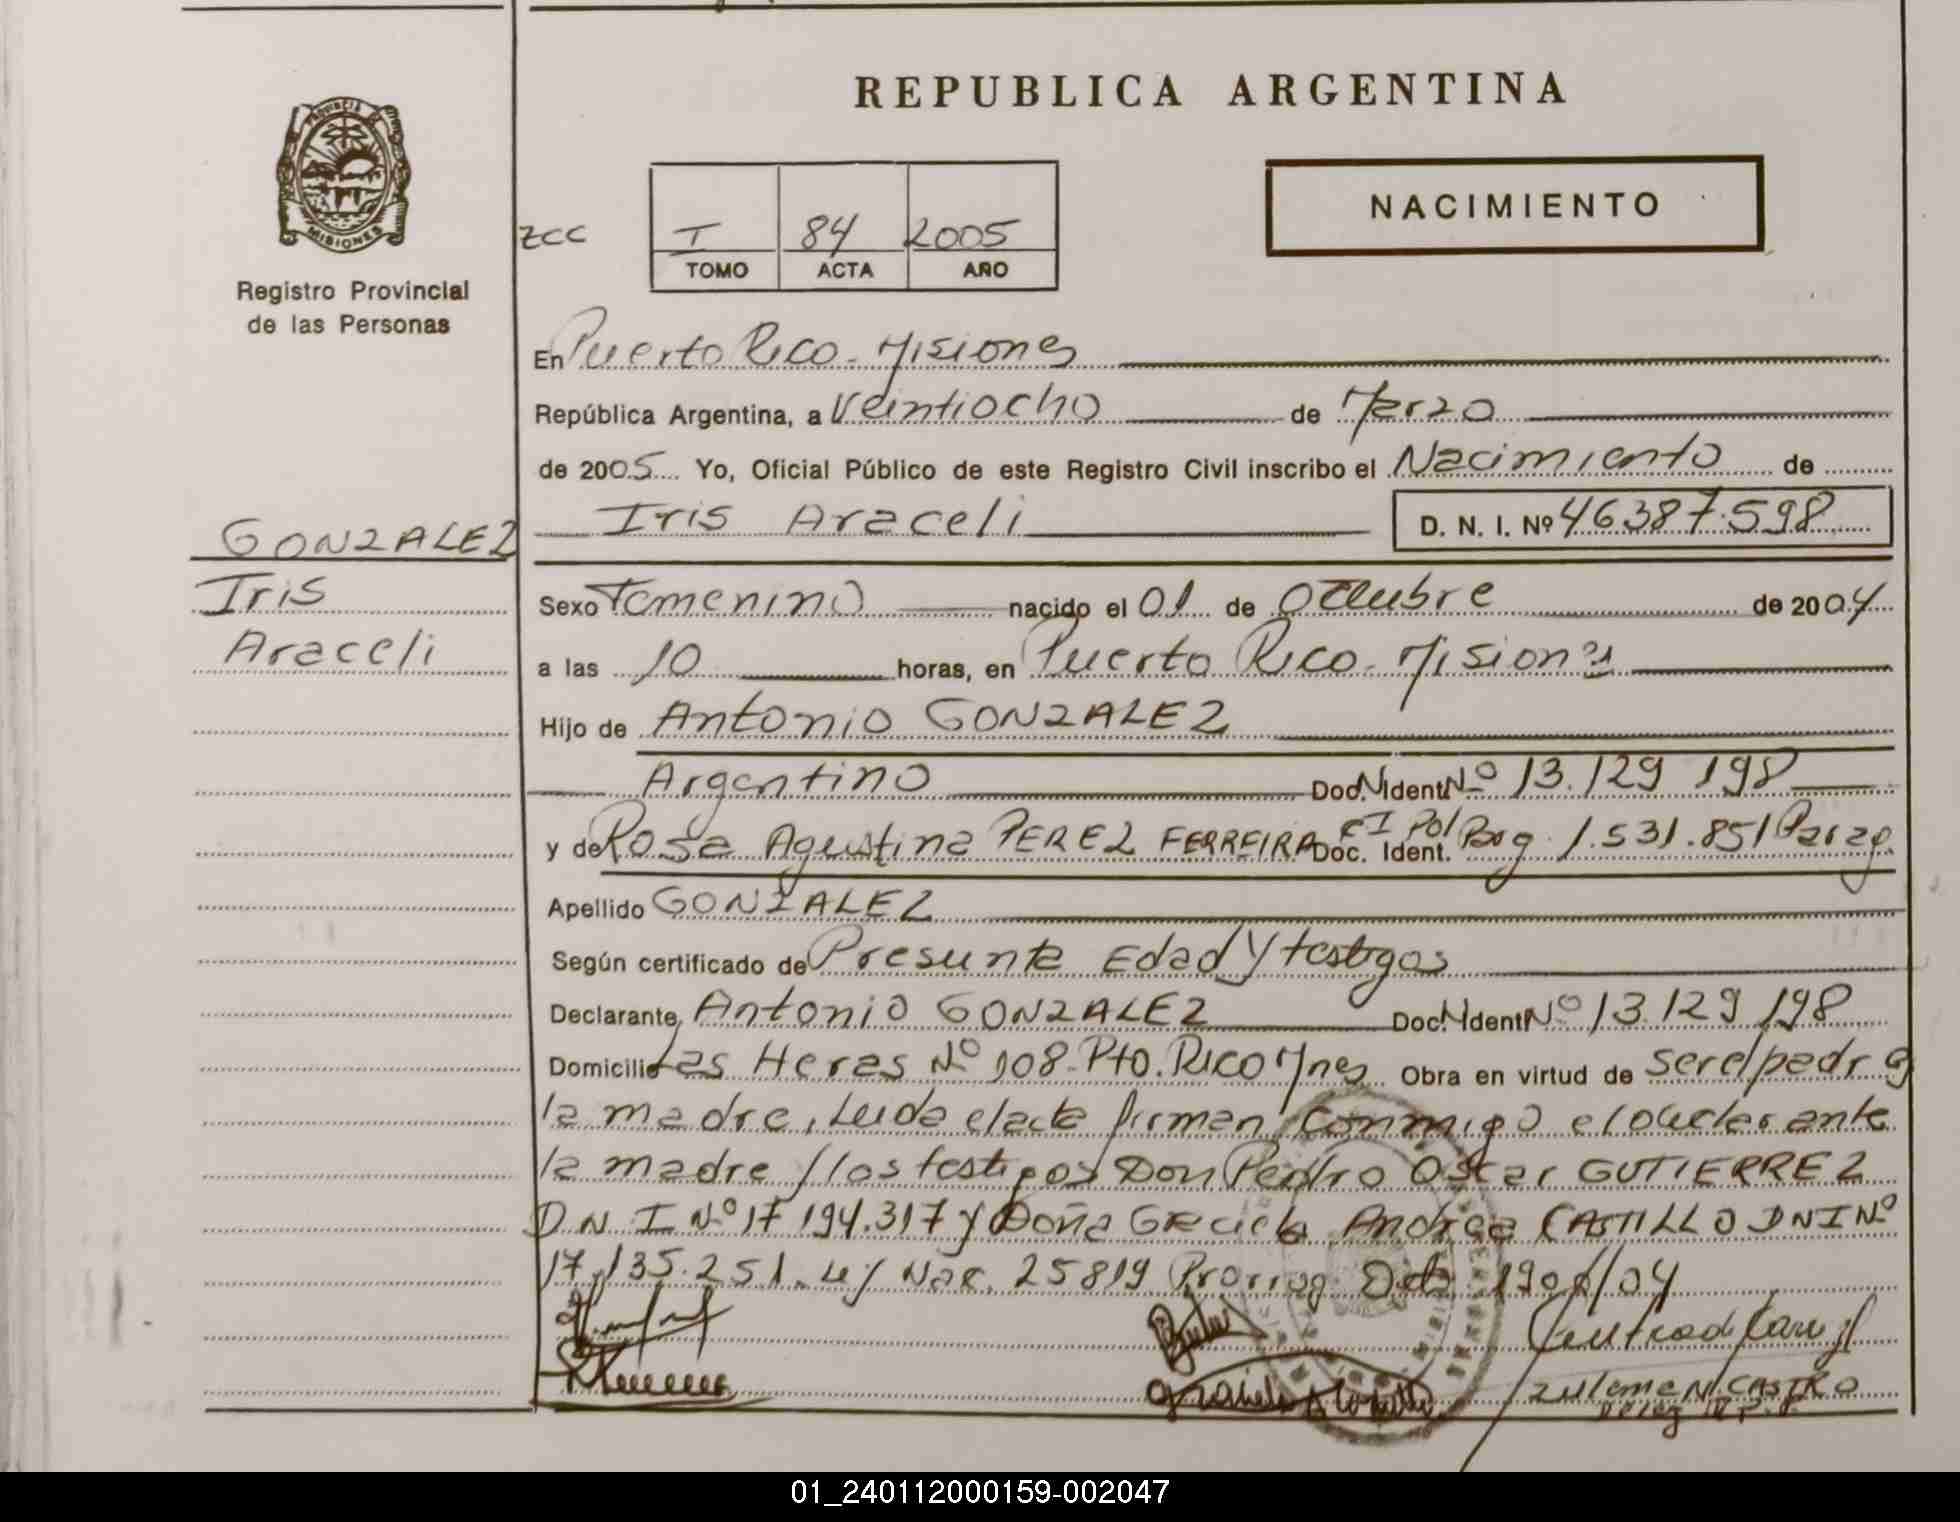 REPUBLICA ARGENTINA
PROVINCIA DE
MISIONES
NACIMIENTO
Registro Provincial
de las Personas
ZCC
I 84 2005
TOMO ACTA AÑO
En Puerto Rico - Misiones
República Argentina, a Veintiocho de Marzo
de 2005 Yo, Oficial Público de este Registro Civil inscribo el Nacimiento de
Iris Araceli D. N. I. Nº 46387.598
GONZALEZ
Iris
Araceli
Sexo Femenino nacido el 01 de Octubre de 2004
a las 10 horas, en Puerto Rico - Misiones
Hijo de Antonio GONZALEZ
Argentino Doc. N Ident. Nº 13.129 198
y de Rosa Agustina PEREZ FERREIRA Doc. Ident. CI Pol 1.531.851 Parag.
Apellido GONZALEZ
Según certificado de Presunta Edad y testigos
Declarante Antonio GONZALEZ Doc. N Ident. Nº 13.129 198
Domicilio Las Heras Nº 108 - Pto. Rico Mnes Obra en virtud de ser el padre
la madre, Leida el acta firman conmigo el declarante
la madre y los testigos Don Pedro Oscar GUTIERREZ
D N I Nº 17 194.317 y Doña Graciela Andrea CASTILLO DNI Nº
17.135.251. Ley Nac. 25819 Prorrog. Dcto. 190 /04
CASTRO
01_240112000159-002047